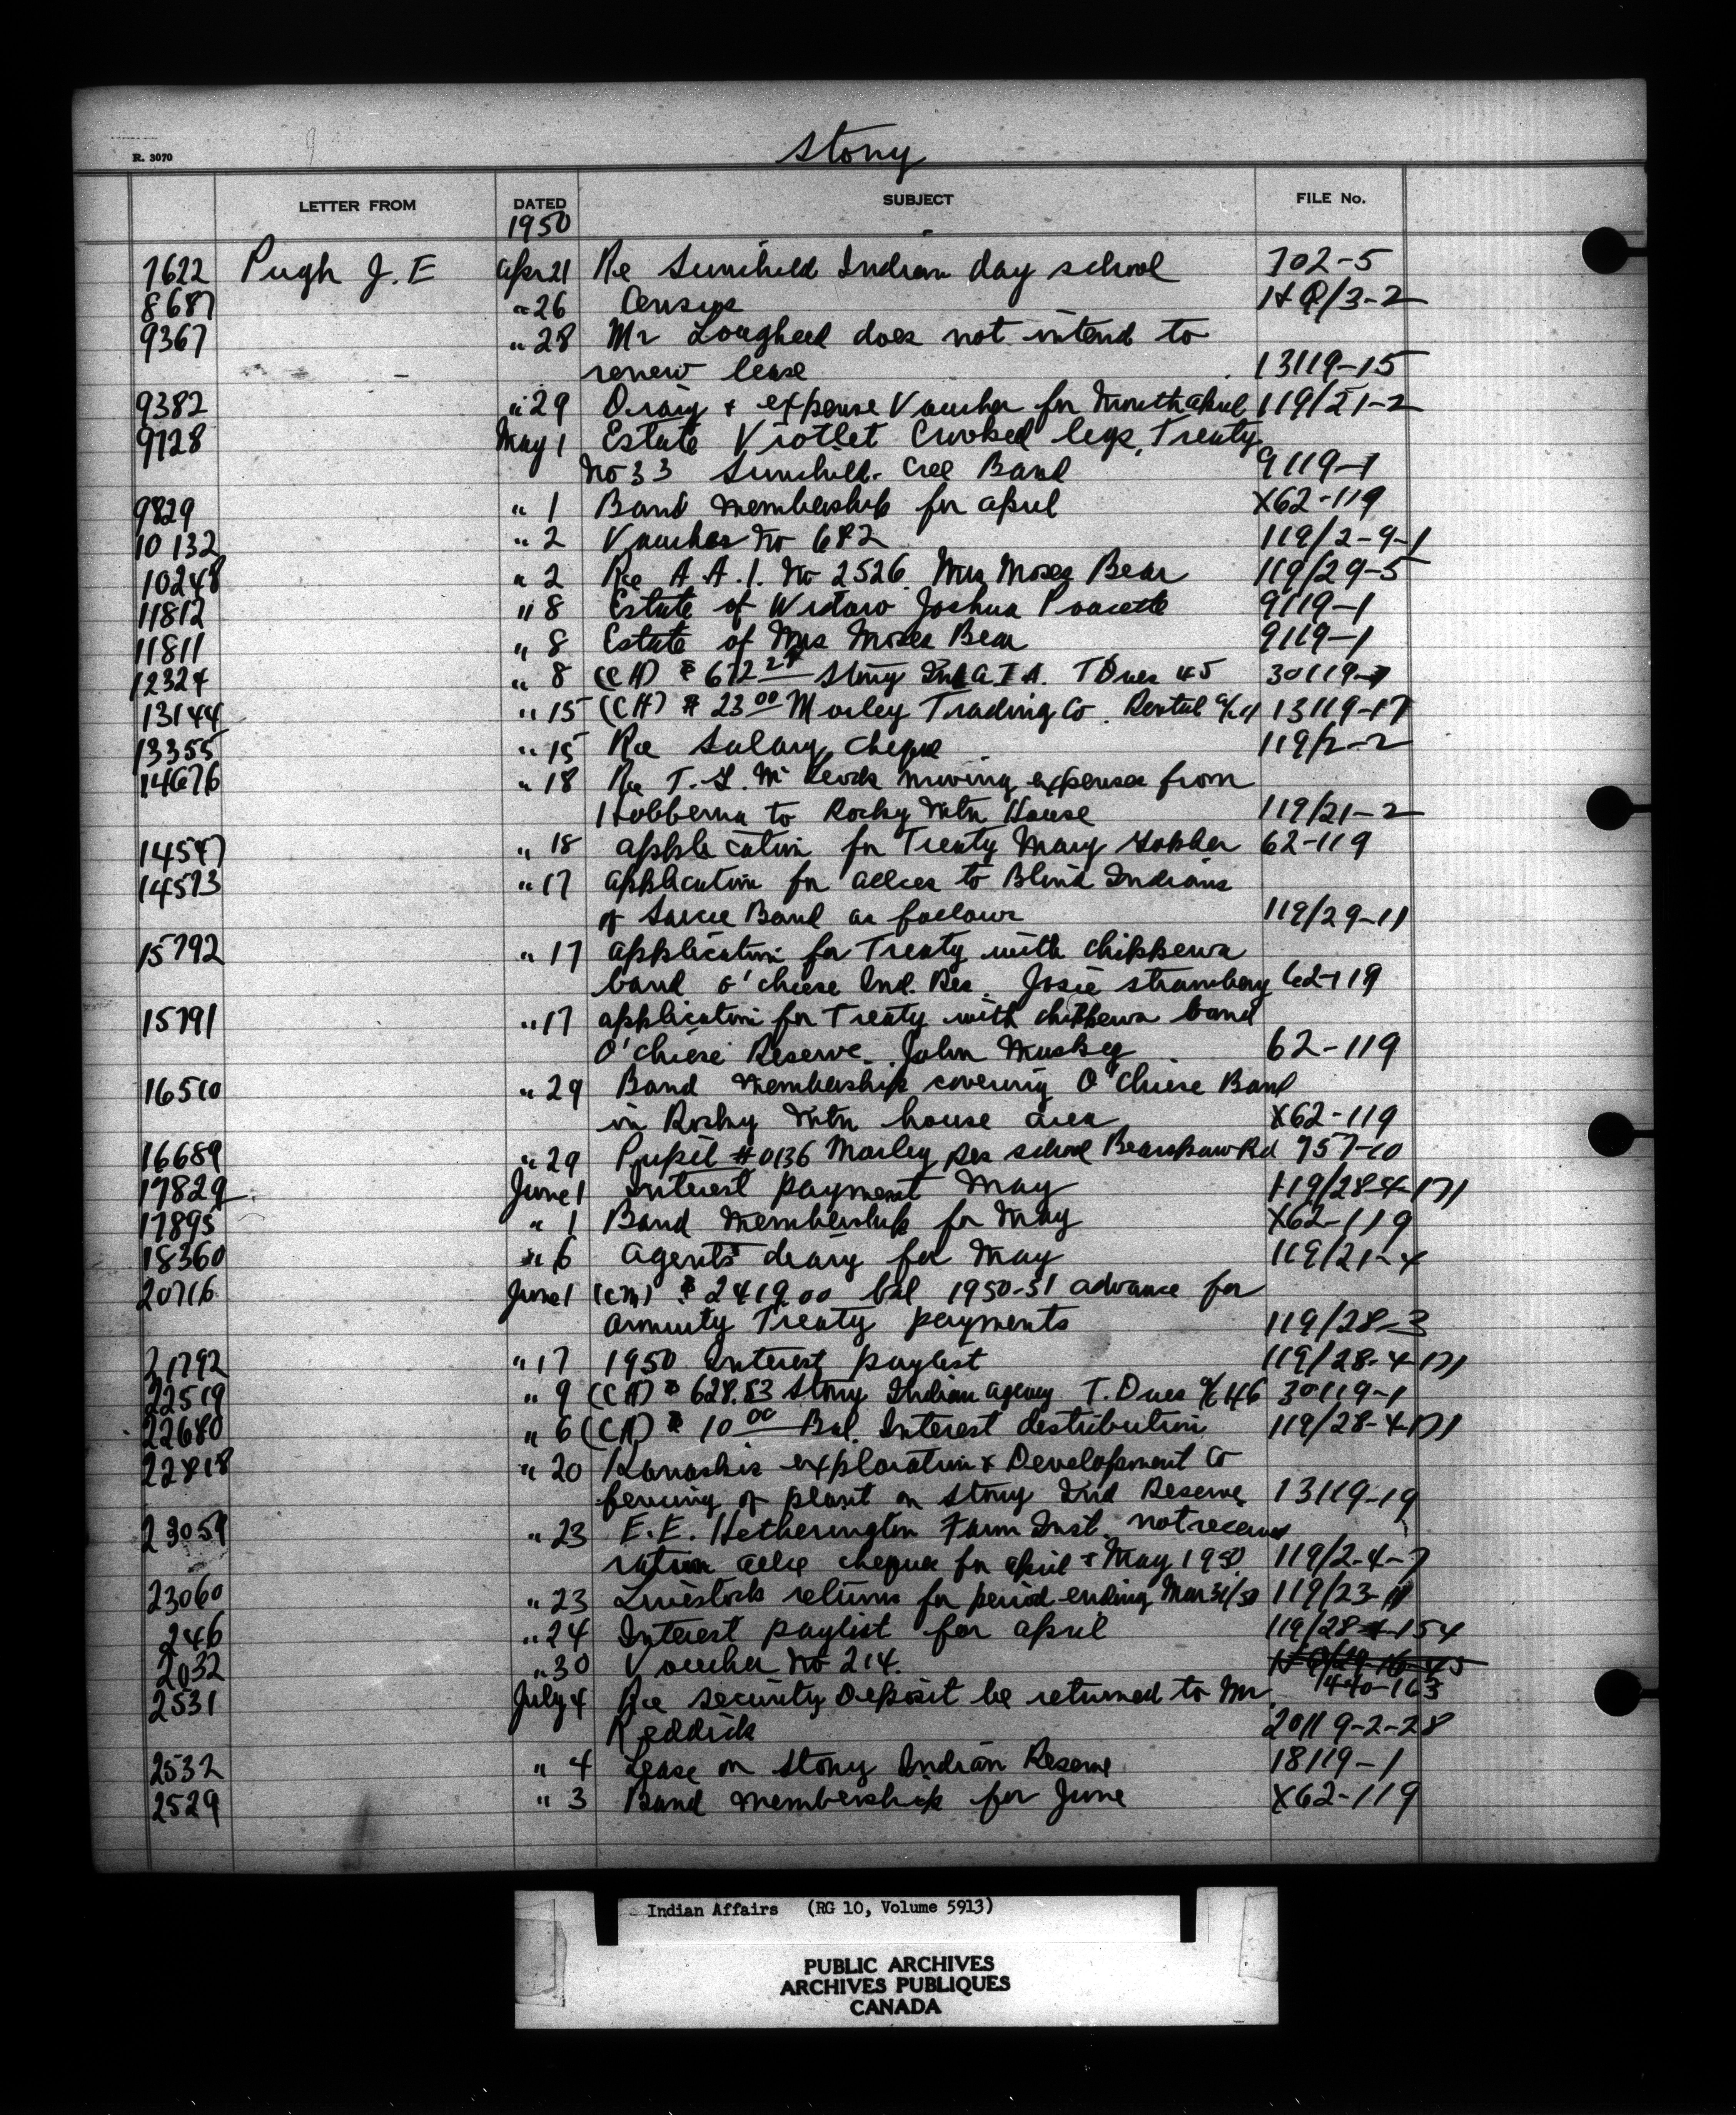 Stony
R. 3070
LETTER FROM DATED SUBJECT FILE No.
1950
7622 Pugh J. E Apr 21 Re Sunchild Indian day school 702-5
8687 " 26 Census HQ/3-2
9367 " 28 Mr Lougheed does not intend to
renew lease 13119-15
9382 " 29 Diary & expense Voucher for Month April 119/21-2
9728 May 1 Estate Viotlet Crooked legs, Treaty
No 33 Sunchild. Cree Band 9119-1
9829 " 1 Band Membership for April X62-119
10132 " 2 Voucher No 682 119/2-9-1
10248 " 2 Re A.A.1. No 2526 Mrs Moses Bear 119/29-5
11812 " 8 Estate of Widow Joshua Poucette 9119-1
11811 " 8 Estate of Mrs Moses Bear 9119-1
12324 " 8 (CH) $ 672 Stony Ind A I A. T Dues 45 30119-1
13144 " 15 (CH) $ 23 00 Morley Trading Co. Rental 13119-17
13355 " 15 Re Salary cheque 119/2-2
14676 " 18 Re T. moving expenses from
Hobbema to Rocky Mtn House 119/21-2
14547 " 18 application for Treaty Mary 62-119
14573 " 17 application for allces to Blind Indians
of Sarcee Band as follows 119/29-11
15792 " 17 application for Treaty with Chippewa
band O'chiese Ind. Res. Josie strawberry 62-119
15791 " 17 application for Treaty with chippewa band
O'chiese Reserve. John Muskeg 62-119
16510 " 29 Band Membership covering O'Chiese Band
in Rocky Mtn house area X62-119
16689 " 29 Pupil #0136 Morley Res school Bearspaw Rd 757-10
17829 June 1 Interest payment May 119/28-4-171
17895 " 1 Band Membership for May X62-119
18360 " 6 Agents diary for May 119/21-4
20716 June 1 (CM) $ 2419.00 bal 1950-51 advance for
annuity Treaty payments 119/28-3
21792 " 17 1950 Interest paylist 119/28-4-171
22519 " 9 (CH) $ 628.83 Stony Indian Agency T. Dues a/c 146 30119-1
22680 " 6 (CH) $ 10 00 Bal. Interest distribution 119/28-4-171
22818 " 20 Kanaskis exploration & Development Co
fencing of plant on Stony Ind Reserve 13119-19
23059 " 23 E.E. Hetherington Farm Inst. not received
ration allce cheque for April & May 1950 119/2-4-7
23060 " 23 Livestock returns for period ending Mar 31/50 119/23-11
246 " 24 Interest paylist for April 119/28-4-154
2032 " 30 Voucher No 214. 1440-163
2531 July 4 Re security Deposit be returned to Mr
Reddick 20119-2-28
2532 " 4 Lease on Stony Indian Reserve 18119-1
2529 " 3 Band Membership for June X62-119
Indian Affairs (RG 10, Volume 5913)
PUBLIC ARCHIVES
ARCHIVES PUBLIQUES
CANADA